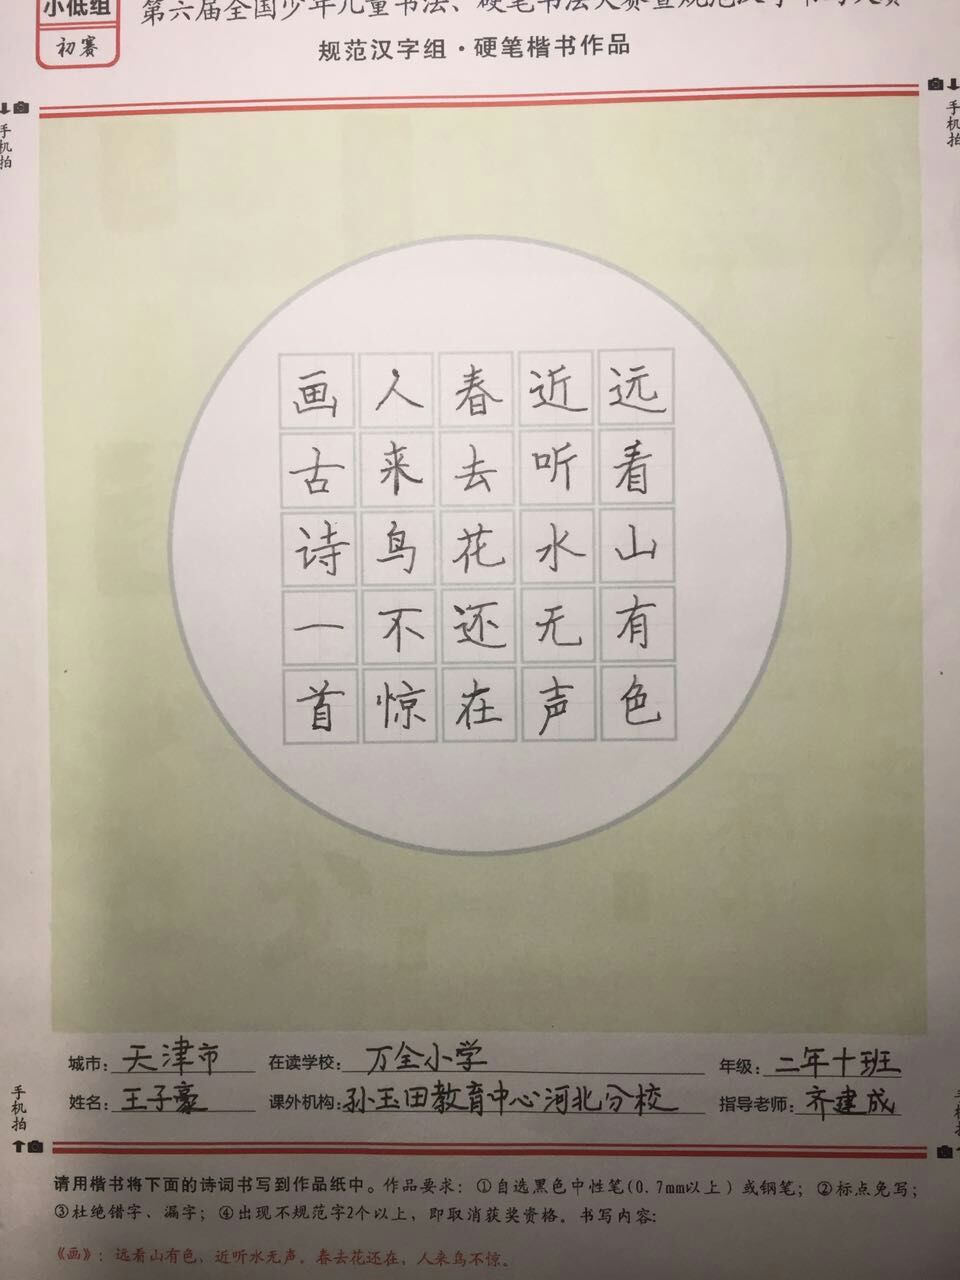 小低组
初赛
第六届全国少年儿童书法、硬笔书法大赛暨规范汉字书写大赛
规范汉字组·硬笔楷书作品
手机拍
手机拍
远看山有色
近听水无声
春去花还在
人来鸟不惊
画古诗一首
城市：天津市 在读学校：万全小学 年级：二年十班
姓名：王子豪 课外机构：孙玉田教育中心河北分校 指导老师：齐建成
手机拍
手机拍
请用楷书将下面的诗词书写到作品纸中。作品要求：①自选黑色中性笔(0.7mm以上)或钢笔；②标点免写；
③杜绝错字、漏字；④出现不规范字2个以上，即取消获奖资格。书写内容：
《画》：远看山有色，近听水无声。春去花还在，人来鸟不惊。